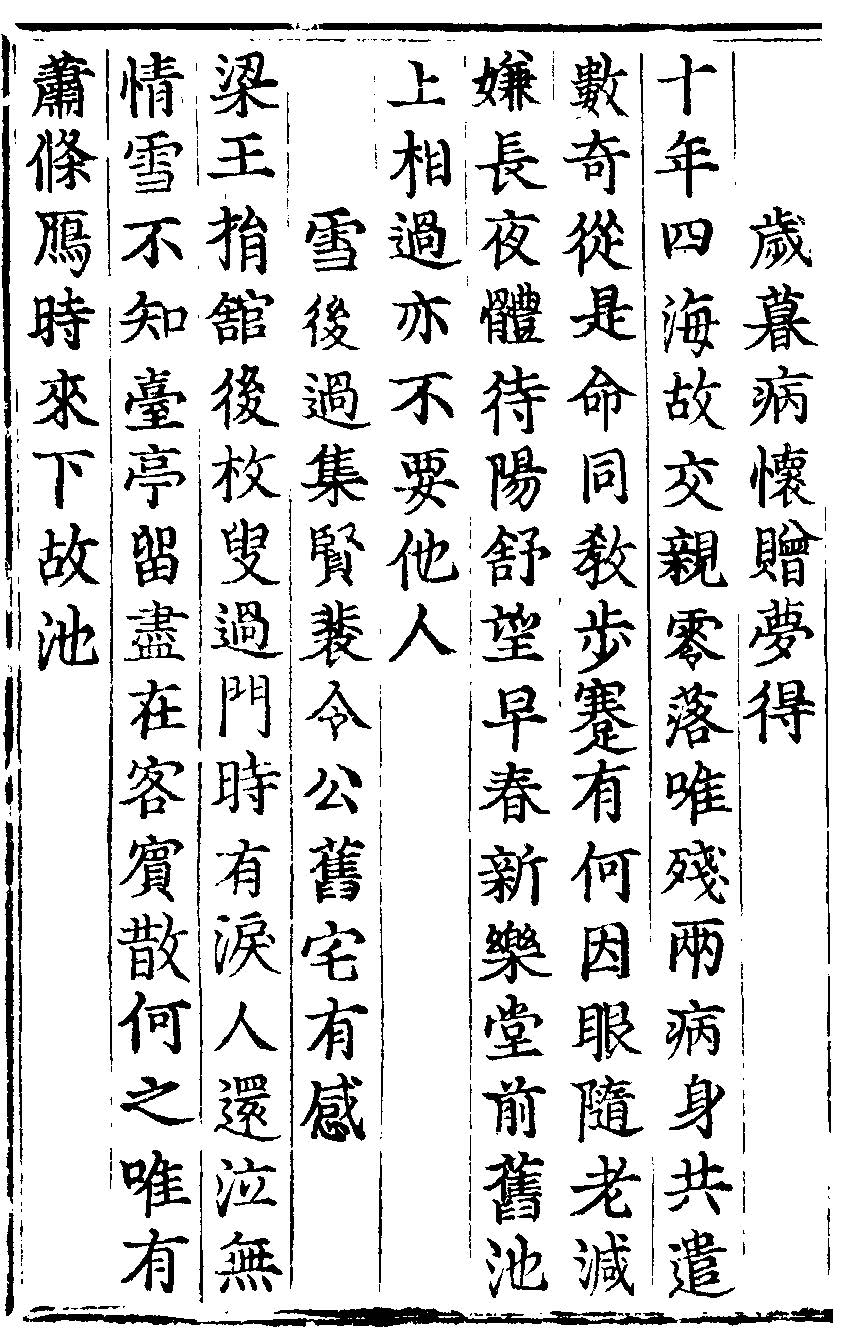 歲暮病懷贈夢得
十年四海故交親零落唯殘兩病身共遣
數奇從是命同教步蹇有何因眼隨老減
嫌長夜體待陽舒望早春新樂堂前舊池
上相過亦不要他人
雪後過集賢裴令公舊宅有感
梁王捐舘後枚叟過門時有淚人還泣無
情雪不知臺亭留盡在客賓散何之唯有
蕭條鴈時來下故池